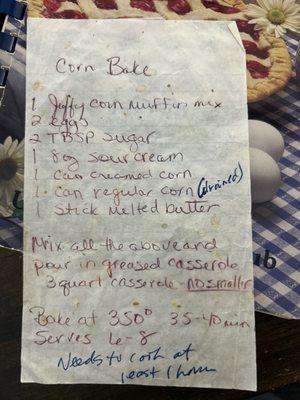 Corn Bake
1 Jiffy corn muffin mix
2 eggs
2 TBSP sugar
1 8oz sour cream
1 can creamed corn
1 can regular corn (drained)
1 stick melted butter
Mix all the above and
pour in greased casserole
3 quart casserole - no smaller
Bake at 350° 35-40 min
Serves 6-8
Needs to cook at
least 1 hour
ub